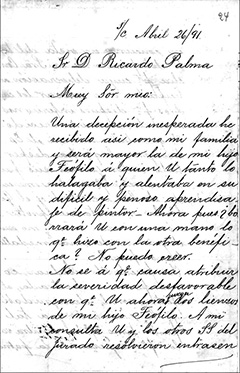 24
S/c Abril 26/91
Sr D Ricardo Palma
Muy Sór mio:
Una decepción inesperada he
recibido asi como mi familia
y será mayor la de mi hijo
Teófilo á quien U tanto lo
halagaba y alentaba en su
dificil y penoso aprendisa
je de pintor. Ahora pues? bo
rrará U con una mano lo
qe hizo con la otra benéfi
ca? No puedo creer.
No se á qe causa atribuir
la severidad desfavorable
con qe U ahora juzga dos lienzos
de mi hijo Teófilo. A mi
consulta U y los otros SS del
Jurado resolvieron entrasen